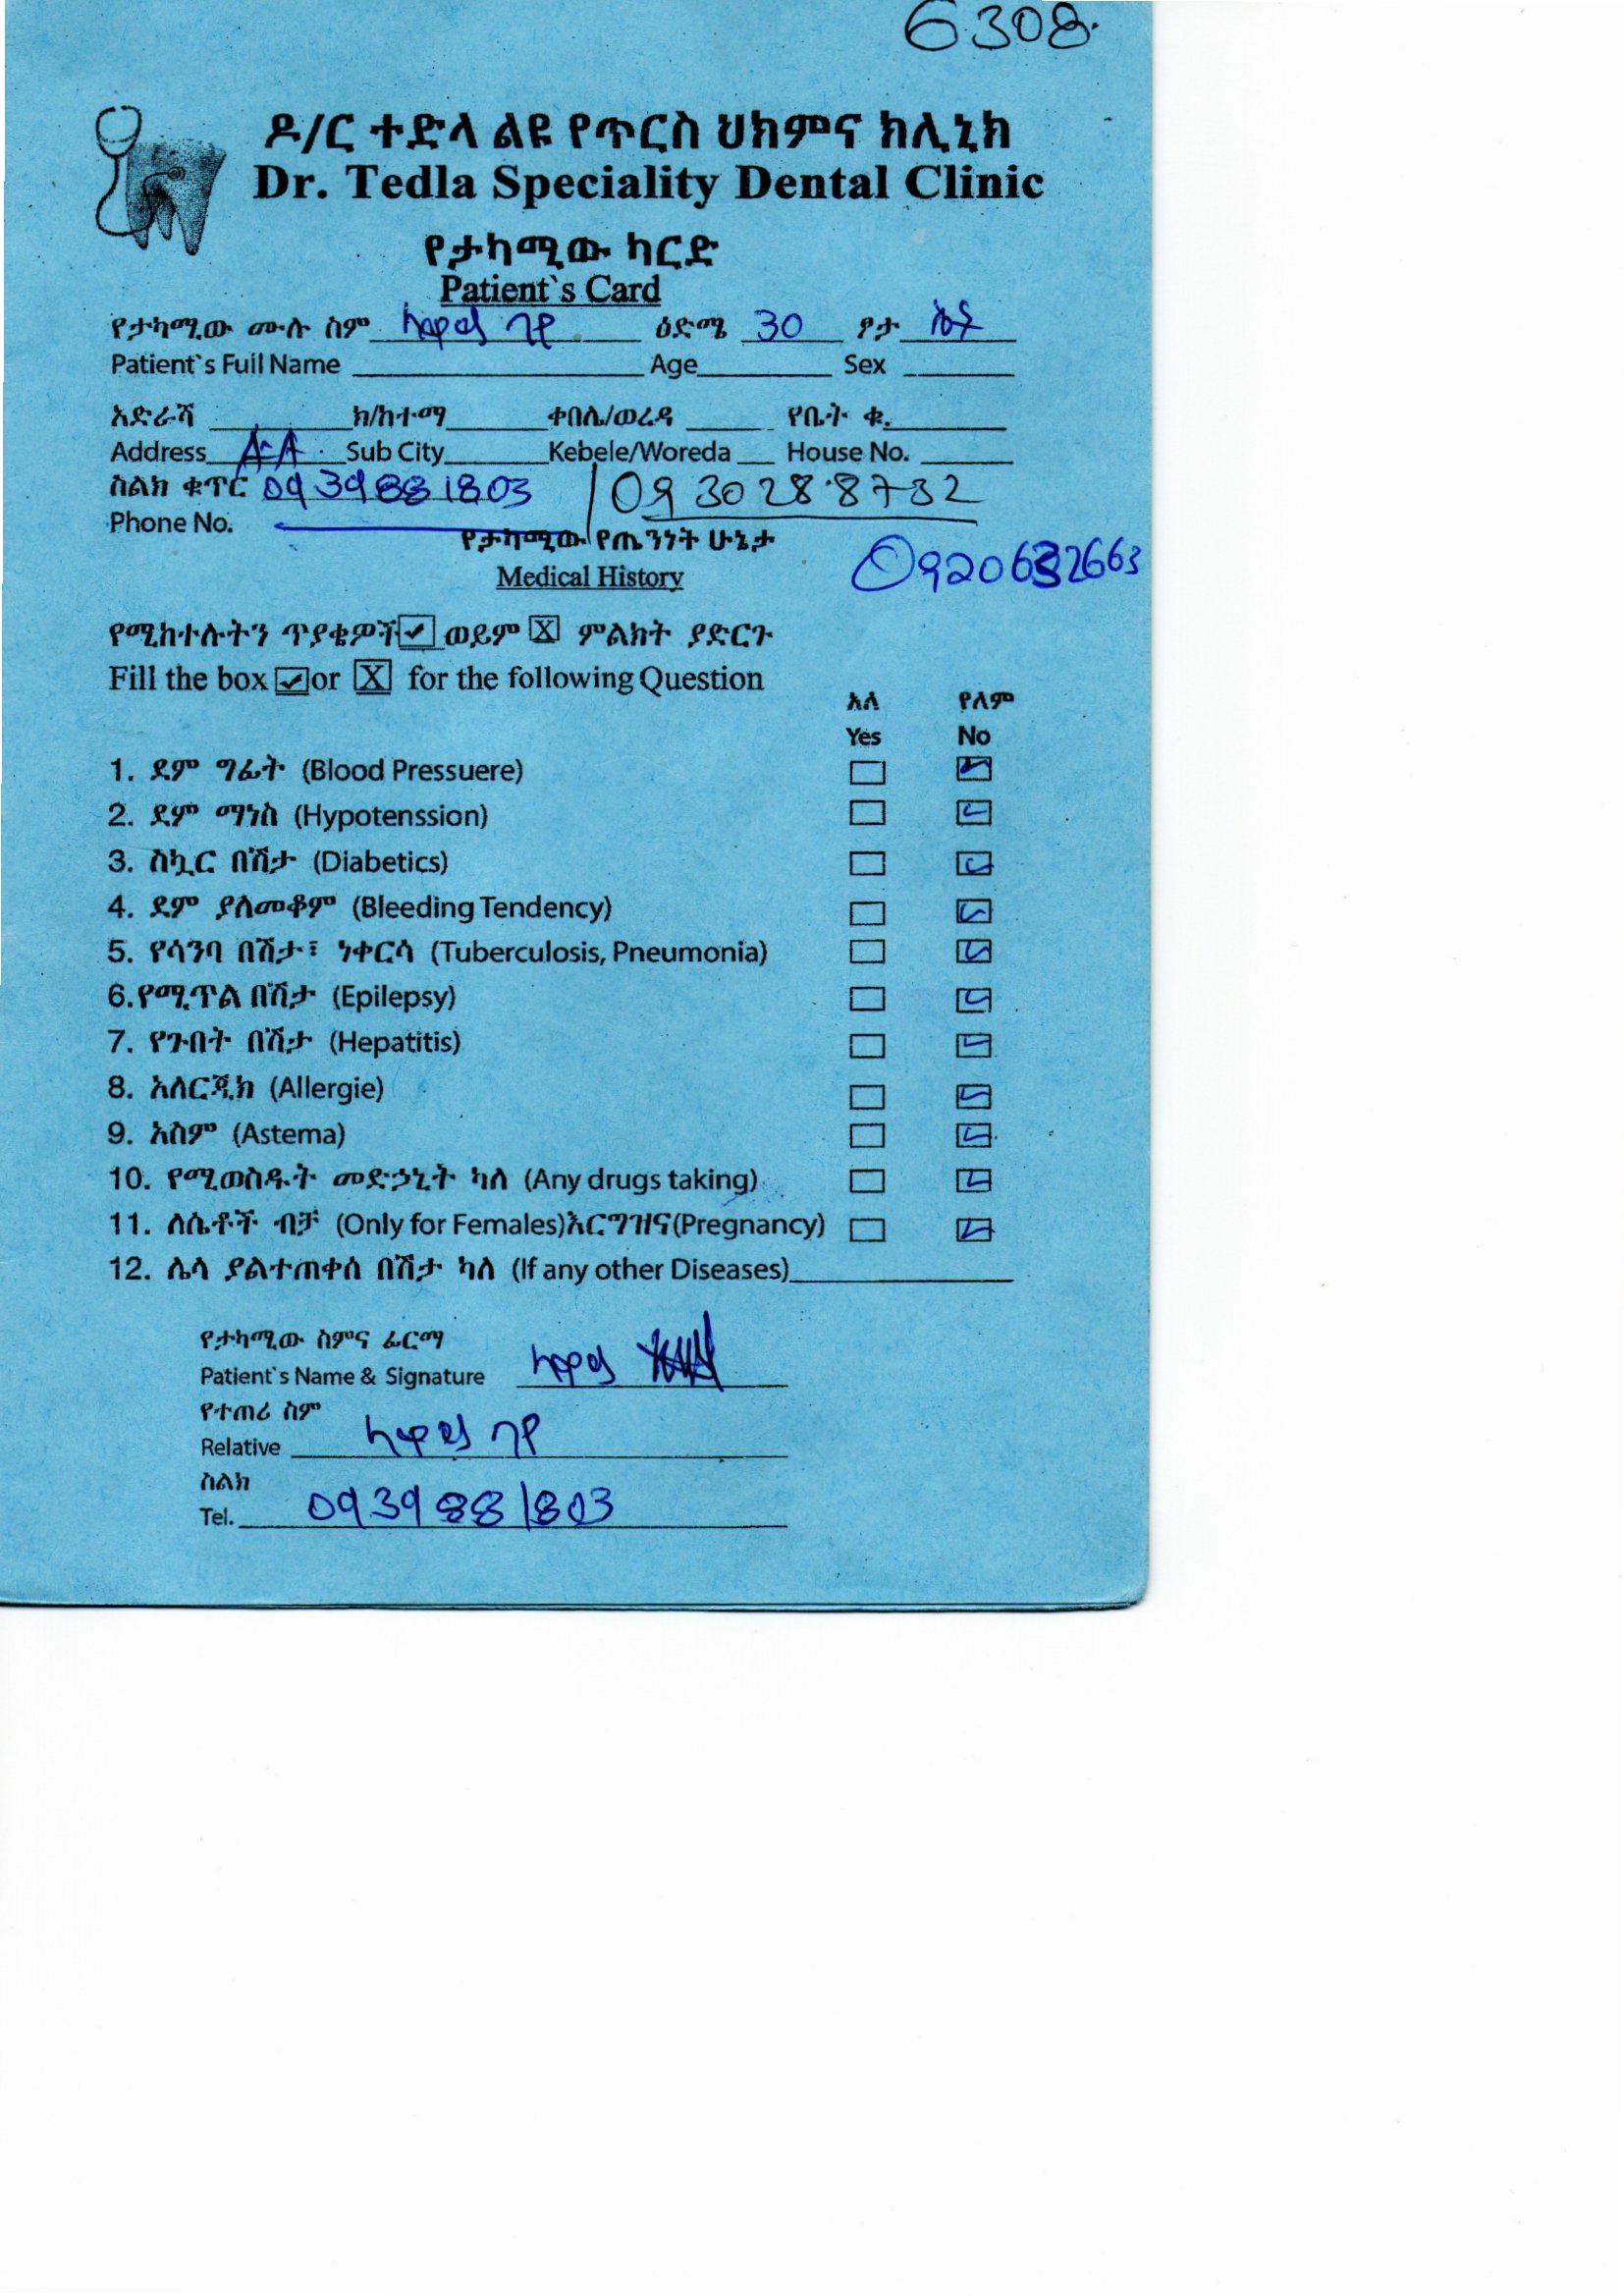 6308
ዶ/ር ተድላ ልዩ የጥርስ ህክምና ክሊኒክ
Dr. Tedla Speciality Dental Clinic
የታካሚው ካርድ
Patient`s Card
የታካሚው ሙሉ ስም ዕድሜ 30 ፆታ
Patient`s Full Name Age Sex
አድራሻ ክ/ከተማ ቀበሌ/ወረዳ የቤት ቁ.
Address A.A Sub City Kebele/Woreda House No.
ስልክ ቁጥር 0939881803 / 0930288732
Phone No.
የታካሚው የጤንነት ሁኔታ
Medical History
የሚከተሉትን ጥያቄዎች ✓ ወይም X ምልክት ያድርጉ
Fill the box ✓ or X for the following Question
አለ የለም
Yes No
1. ደም ግፊት (Blood Pressuere)
2. ደም ማነስ (Hypotenssion)
3. ስኳር በሽታ (Diabetics)
4. ደም ያለመቆም (Bleeding Tendency)
5. የሳንባ በሽታ፣ ነቀርሳ (Tuberculosis, Pneumonia)
6.የሚጥል በሽታ (Epilepsy)
7. የጉበት በሽታ (Hepatitis)
8. አለርጂክ (Allergie)
9. አስም (Astema)
10. የሚወስዱት መድኃኒት ካለ (Any drugs taking)
11. ለሴቶች ብቻ (Only for Females)እርግዝና(Pregnancy)
12. ሌላ ያልተጠቀሰ በሽታ ካለ (If any other Diseases)
የታካሚው ስምና ፊርማ
Patient`s Name & Signature
የተጠሪ ስም
Relative
ስልክ
Tel. 0939881803